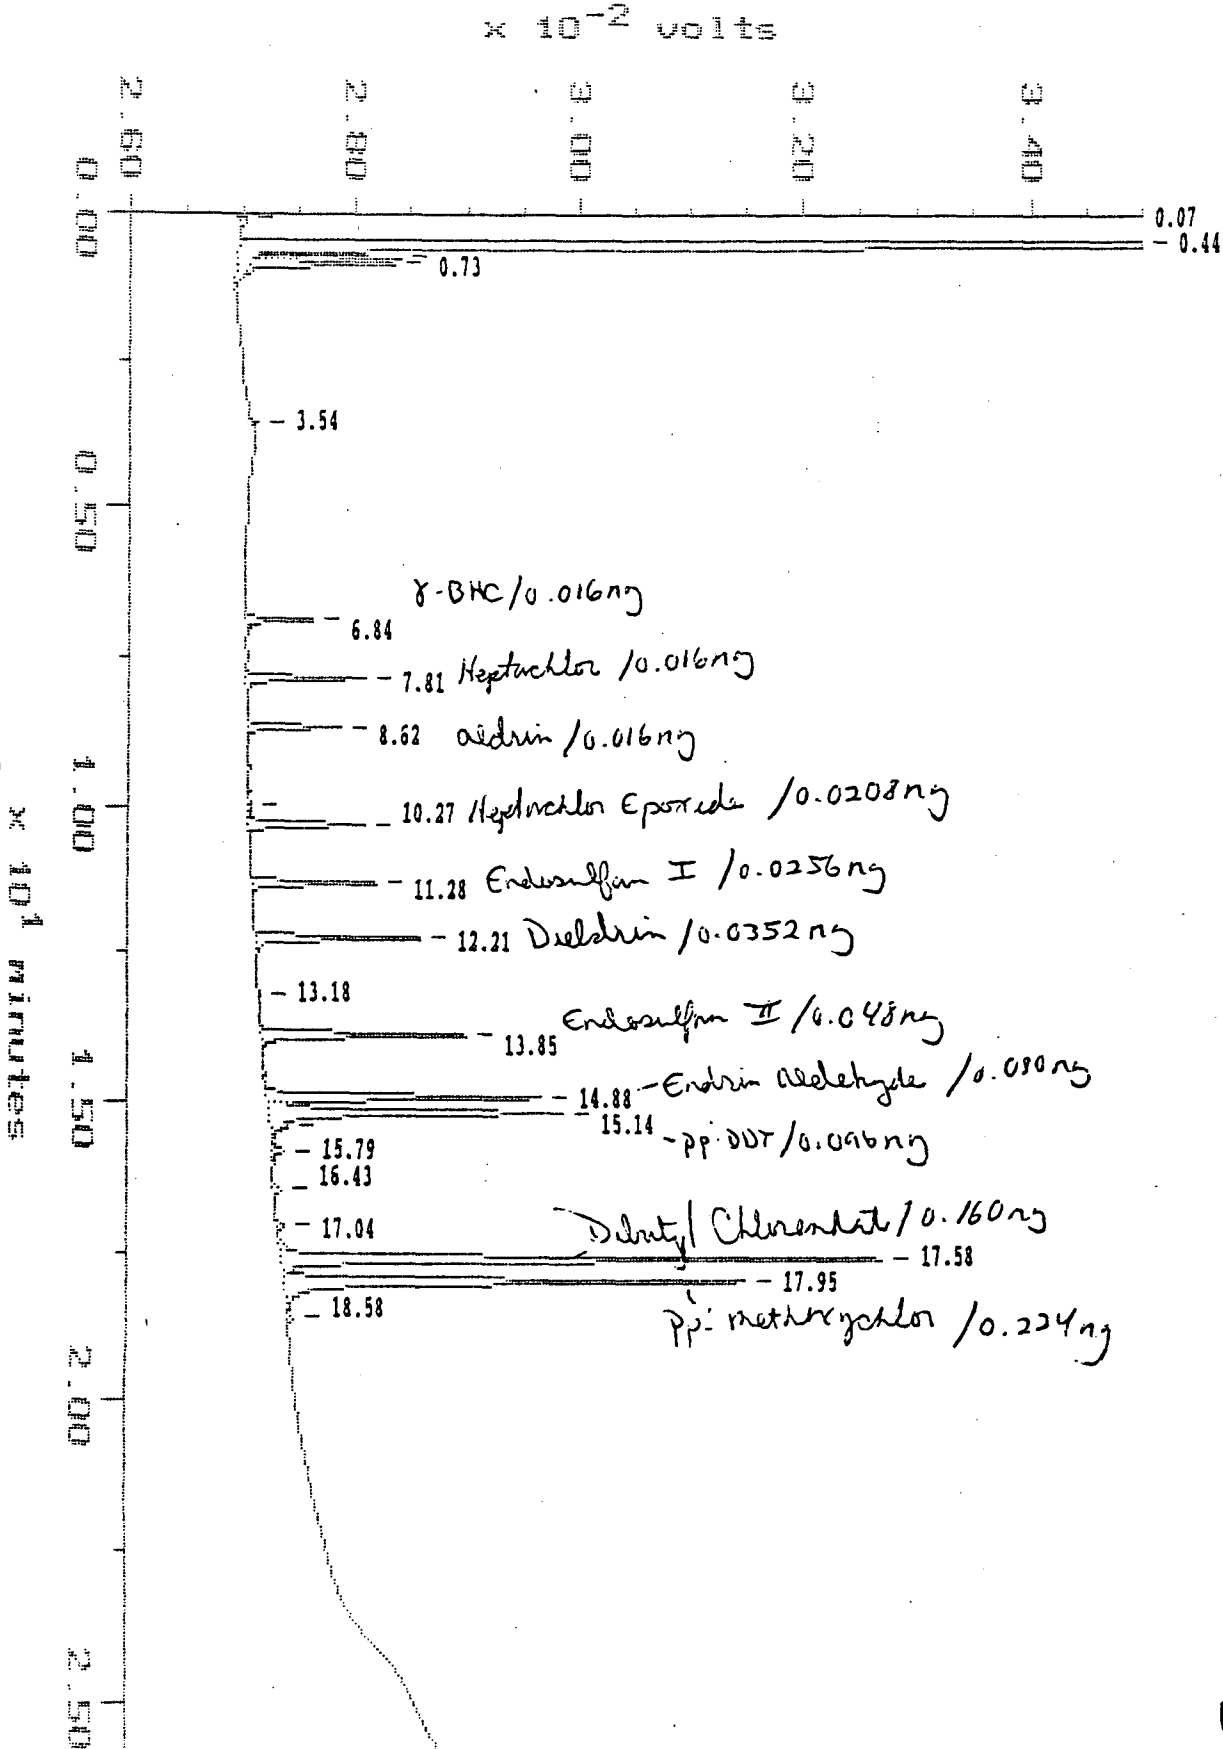 x 10-2 volts
2.60
2.80
3.00
3.20
3.40
0.00
0.07
0.44
0.73
3.54
0.50
γ-BHC/0.016ng
6.84
7.81 Heptachlor /0.016ng
8.62 aldrin /0.016ng
1.00
10.27 Heptachlor Epoxide /0.0208ng
11.28 Endosulfan I /0.0256ng
12.21 Dieldrin /0.0352ng
13.18
Endosulfan II /0.048ng
13.85
x 10¹ minutes
14.88 -Endrin aldehyde /0.080ng
1.50
15.14 -pp'DDT/0.096ng
15.79
16.43
17.04
Dibutyl Chlorendate/0.160ng
17.58
17.95
18.58
pp'-methoxychlor /0.224ng
2.00
2.50